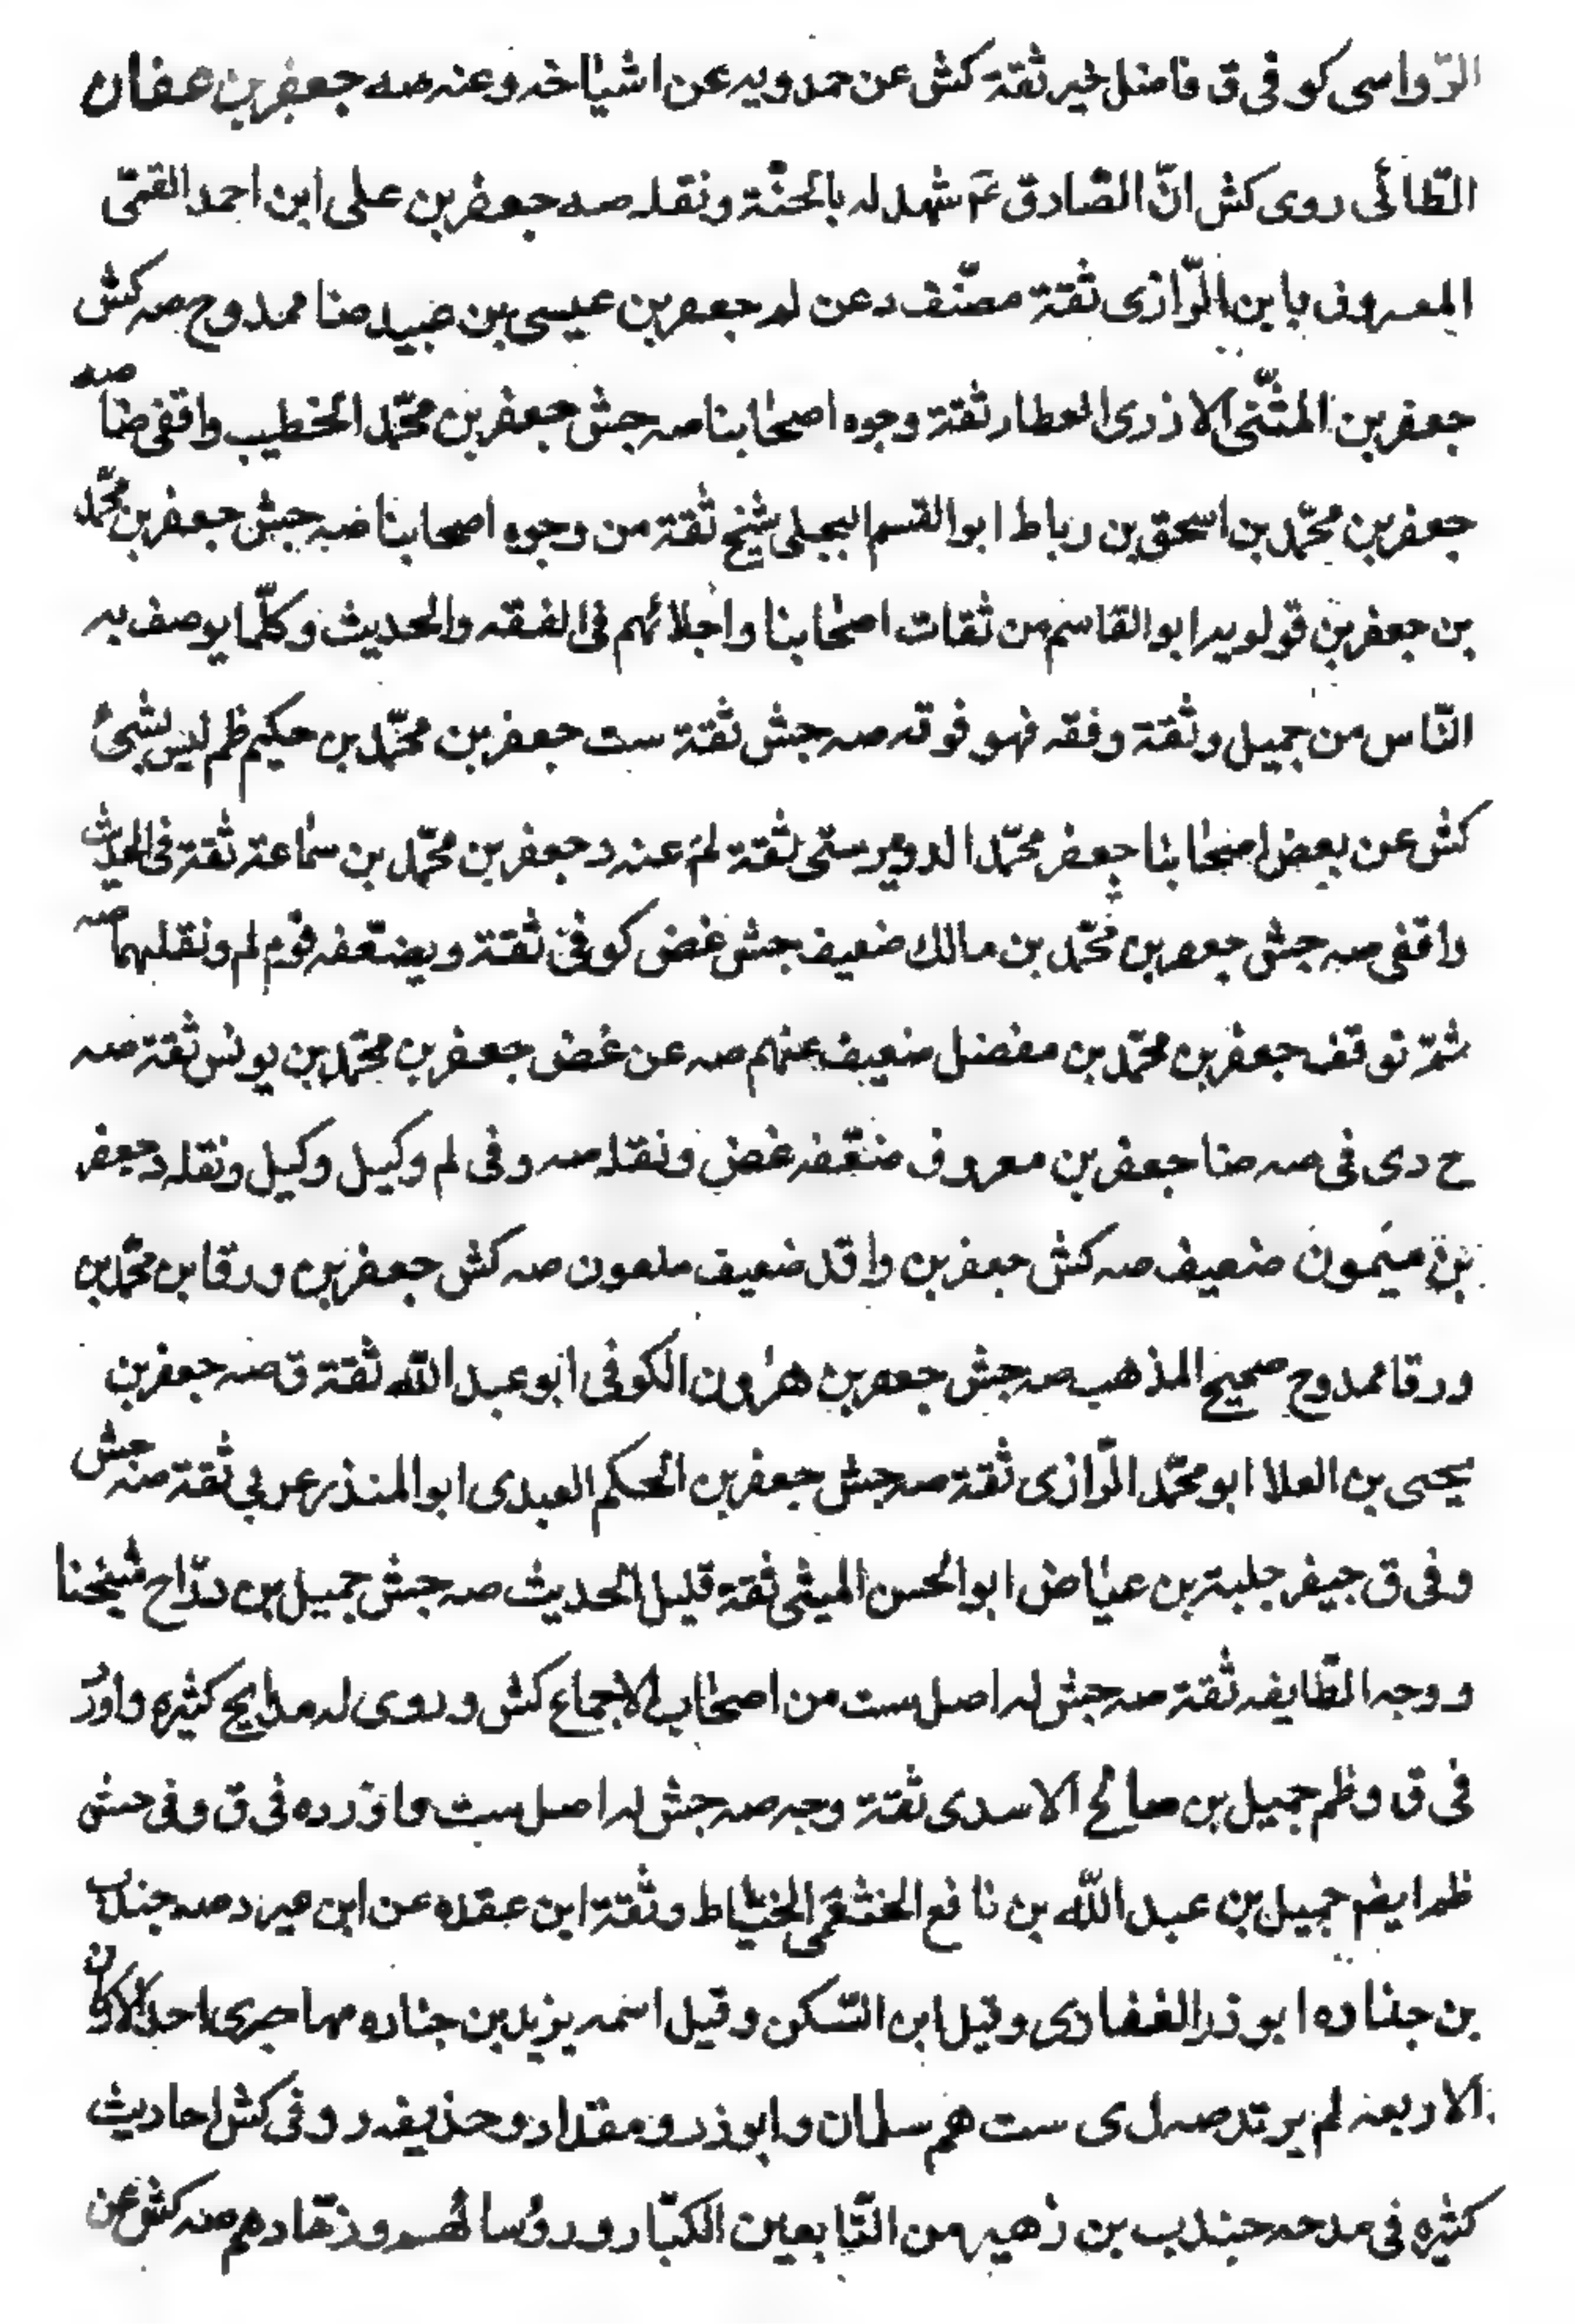 الرّواسى كوفى ق فاضل خير ثقة كش عن حمدويه عن اشياخه وعنه صه جعفر بن عفان
الطّائى روى كش انّ الصّادق ع شهد له بالجنّة ونقله صه جعفر بن على ابن احمد القمّى
المعروف بابن الرّازى ثقة مصنّف د عن لم جعفر بن عيسى بن عبيد ضا ممدوح صه كش
جعفر بن المثنّى الازدى العطار ثقة وجوه اصحابنا صه جش جعفر بن محمّد الخطيب واقفى ضا صه
جعفر بن محمّد بن اسحق بن رباط ابو القسم البجلى شيخ ثقة من وجوه اصحابنا صه جش جعفر بن محمّد
بن جعفر بن قولويه ابو القاسم من ثقات اصحابنا واجلائهم فى الفقه والحديث وكلّما يوصف به
النّاس من جميل وثقة وفقه فهو فوقه صه جش ثقة ست جعفر بن محمّد بن حكيم ظم ليس بشئ
كش عن بعض اصحابنا جعفر محمّد الدويرستى ثقة لم عنه د جعفر بن محمّد بن سماعة ثقة فى الحديث
واقفى صه جش جعفر بن محمّد بن مالك ضعيف جش غض كوفى ثقة ويضعّفه قوم لم ونقلهما صه
ثمّ توقف جعفر بن محمّد بن مفضل ضعيف عنهم صه عن غض جعفر بن محمّد بن يونس ثقة صه
ح دى فى صه ضا جعفر بن معروف ضعّفه غض ونقله صه وفى لم وكيل وكيل ونقله د جعفر
بن ميمون ضعيف صه كش جعفر بن واقد ضعيف ملعون صه كش جعفر بن ورقا بن محمّد بن
ورقا ممدوح صحيح المذهب صه جش جعفر بن هرون الكوفى ابو عبد الله ثقة ق صه جعفر بن
يحيى بن العلا ابو محمّد الرّازى ثقة صه جش جعفر بن الحكم العبدى ابو المنذر عربى ثقة صه جش
وفى ق جيفر جلبة بن عياض ابو الحسن الميثى ثقة قليل الحديث صه جش جميل بن درّاج شيخنا
ووجه الطّايفه ثقة صه جش له اصل ست من اصحاب الاجماع كش وروى له مدايح كثيره واورد
فى ق وظم جميل بن صالح الاسدى ثقة وجه صه جش له اصل ست واورده فى ق وفى جش
ظم ايضم جميل بن عبد الله بن نافع الخثعمى الخيّاط وثقة ابن عقده عن ابن مير د صه جندب
بن جناده ابو ذر الغفارى وقيل ابن السّكن وقيل اسمه يزيد بن جناده مهاجرى احد الاركان
الاربعه لم يرتد صه ل ى ست هم سلمان وابو ذر ومقداد وحذيفه ر وفى كش احاديث
كثيره فى مدحه جندب بن زهير من التّابعين الكبّار ورؤسائهم وزهّادهم صه كش عن